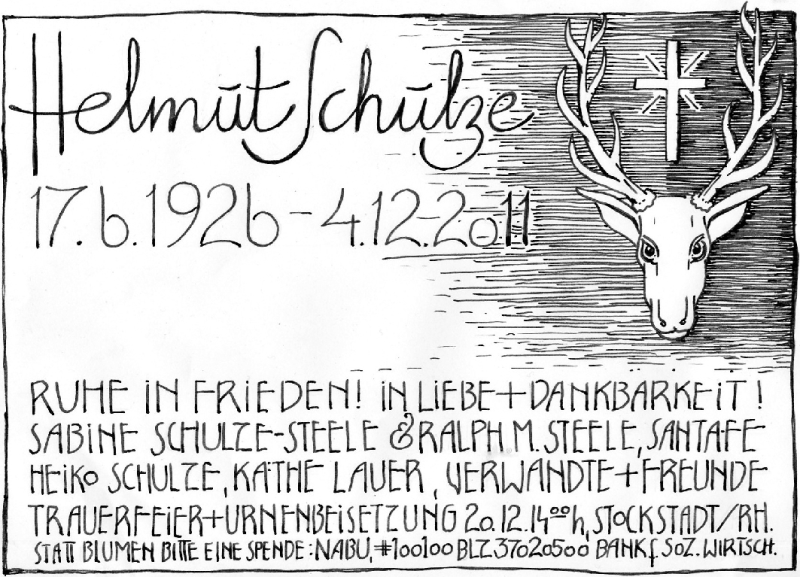 Helmut Schulze
17.6.1926 - 4.12.2011
RUHE IN FRIEDEN! IN LIEBE + DANKBARKEIT!
SABINE SCHULZE-STEELE & RALPH M. STEELE, SANTA FE
HEIKO SCHULZE, KÄTHE LAUER, VERWANDTE + FREUNDE
TRAUERFEIER + URNENBEISETZUNG 20.12. 14⁰⁰h, STOCKSTADT/RH.
STATT BLUMEN BITTE EINE SPENDE: NABU, #100100 BLZ 37020500 BANK f. SOZ. WIRTSCH.